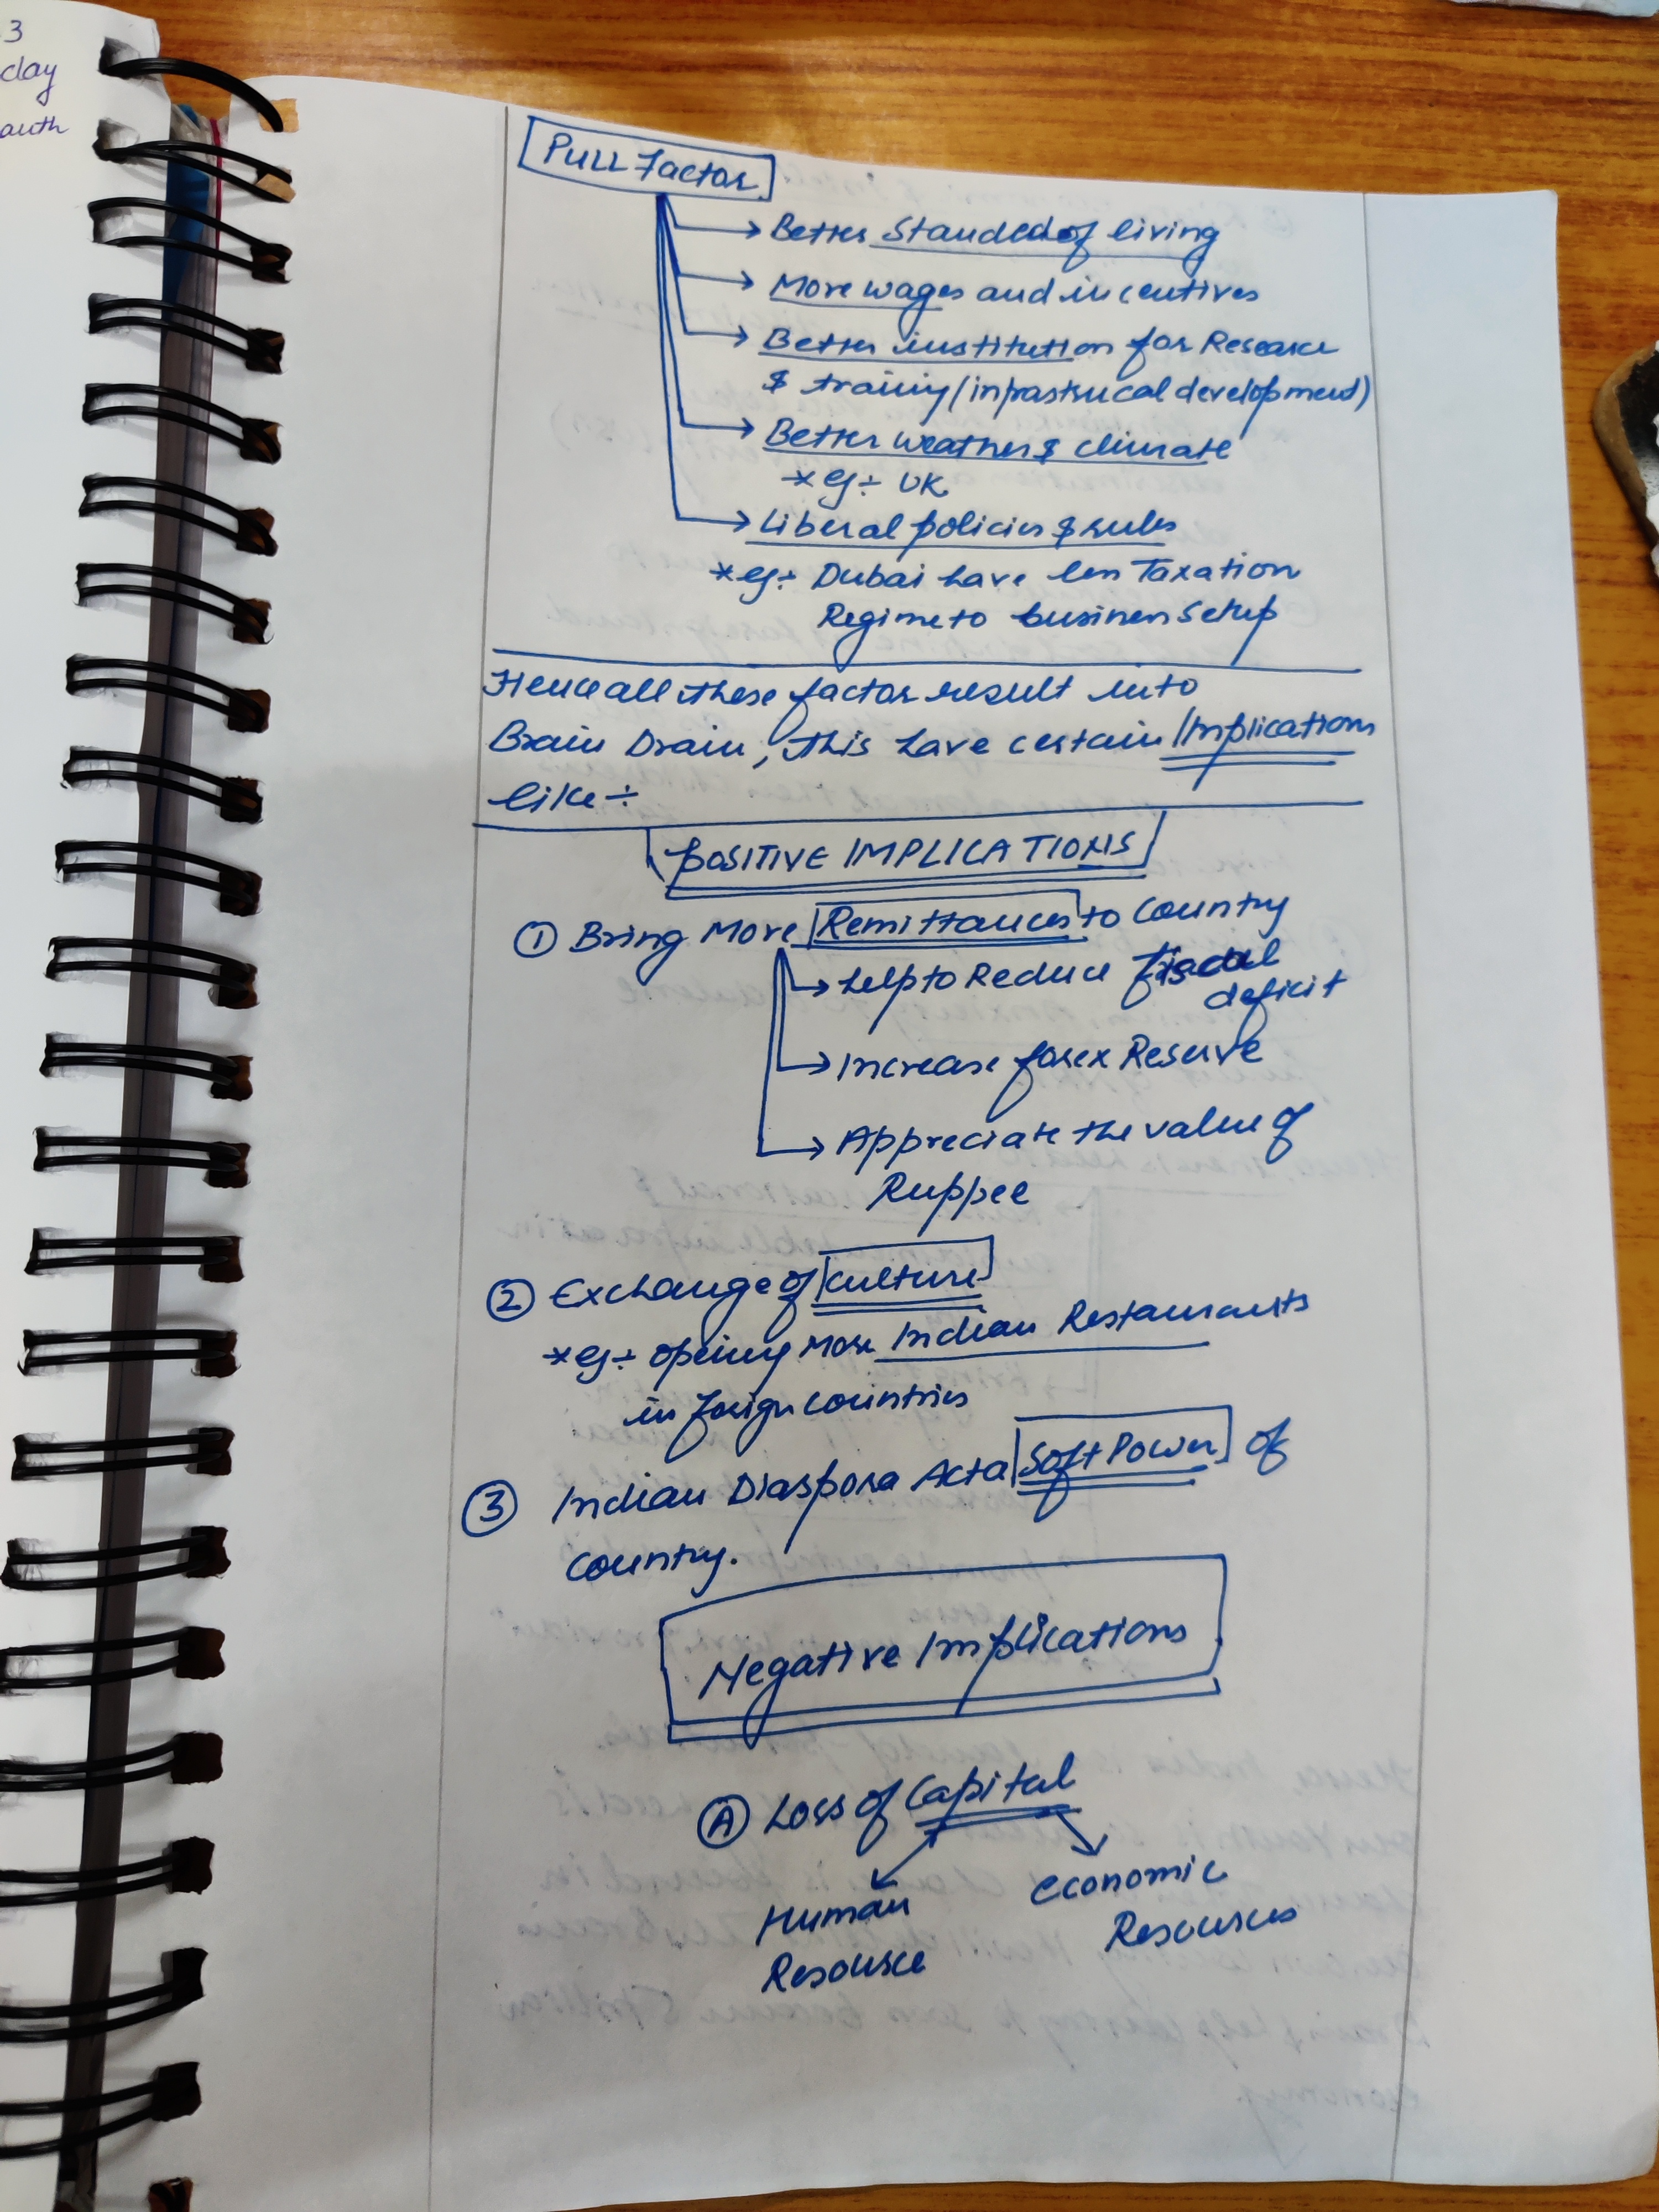 3
day
auth
PULL Factor
Better Standed of living
More wages and incentives
Better institution for Researce
$ trainiy (infrastrucal development)
Better weather $ climate
* eg ÷ UK
Liberal policies $ rules
* eg ÷ Dubai have less Taxation
Regime to business setup
Hence all these factor result into
Brain Drain, this have certain Implications
like ÷
POSITIVE IMPLICATIONS
① Bring More Remittances to Country
help to Reduce fiscal
deficit
Increase forex Reserve
Appreciate the value of
Ruppee
② Exchange of culture
* eg ÷ opeiny more Indian Restaurants
in foreign countries
③ Indian Diaspora Act a Soft Power of
country.
Negative Implications
Ⓐ Loss of Capital
Human Economic
Resource Resources